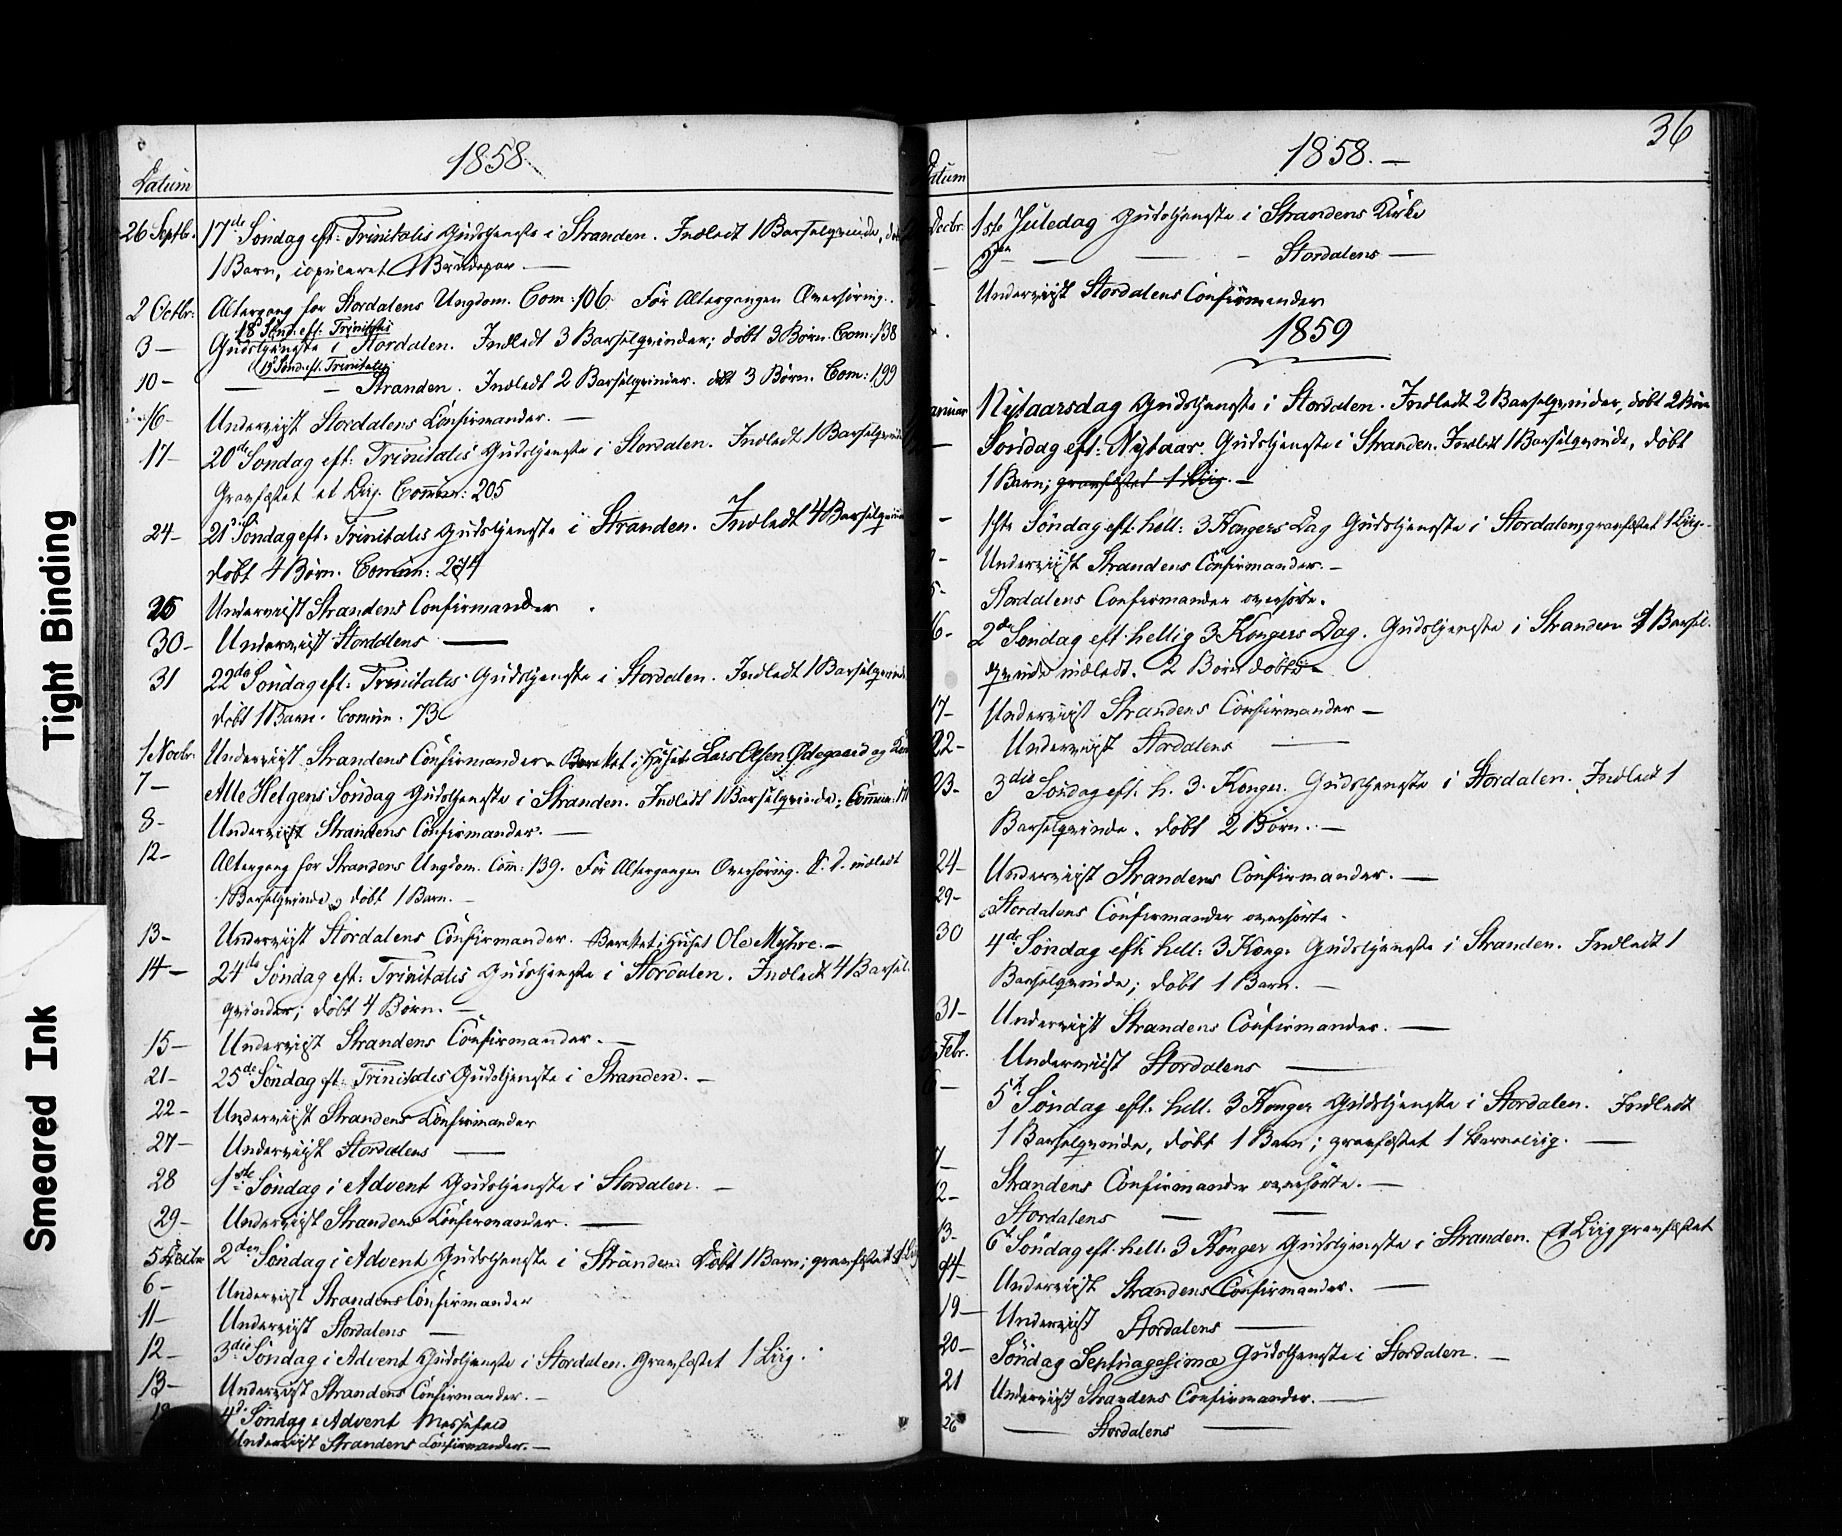 Tight Binding
Smeared Ink
1858.
Datum
26 Septbr. 17de Søndag eft: Trinitatis Gudstjeneste i Stranden. Indledt 1 Barselqvinde, døbt
1 Barn, copuleret 1 Brudepar. —
2 Octbr: Altergang for Stordalens Ungdom. Com: 106. Før Altergangen Overhøring.
18de Sønd: eft: Trinitatis
3 — Gudstjeneste i Stordalen. Indledt 3 Barselqvinder; døbt 3 Børn. Com: 138
19 Sønd: eft. Trinitatis
10 — — — Stranden. Indledt 2 Barselqvinder. døbt 3 Børn. Com: 199
16 — Underviist Stordalens Confirmander. —
17 — 20de Søndag eft: Trinitatis Gudstjeneste i Stordalen. Indledt 1 Barselqvinde
Gravfæstet et Liig. Commun: 205
24 — 21de Søndag eft: Trinitatis Gudstjeneste i Stranden. Indledt 4 Barselqvinder
døbt 4 Børn. Commun: 274
25 Underviist Strandens Confirmander.
30 — Underviist Stordalens —
31 22de Søndag eft: Trinitatis Gudstjeneste i Stordalen. Indledt 1 Barselqvinde
døbt 1 Barn. Commun. 73
1 Novbr. Underviist Strandens Confirmander. Berettet i Huset Lars Olsen Ødegaard og
7 — Alle Helgens Søndag Gudstjeneste i Stranden. Indledt 1 Barselqvinde; Commun:
8 — Underviist Strandens Confirmander. —
12 — Altergang for Strandens Ungdom. Com: 139. Før Altergangen Overhøring. S. D. indledt
1 Barselqvinde, døbt 1 Barn. —
13 — Underviist Stordalens Confirmander. Berettet i Huset Ole Myhre. —
14 — 24de Søndag eft: Trinitatis Gudstjeneste i Stordalen. Indledt 4 Barsel-
qvinder; døbt 4 Børn. —
15 — Underviist Strandens Confirmander. —
21 — 25de Søndag eft: Trinitatis Gudstjeneste i Stranden. —
22 — Underviist Strandens Confirmander
27 — Underviist Stordalens —
28 1ste Søndag i Advent Gudstjeneste i Stordalen. —
29 — Underviist Strandens Confirmander. —
5 Decbr 2den Søndag i Advent Gudstjeneste i Stranden. Døbt 1 Barn; gravfæstet 1 Liig
6 — Underviist Strandens Confirmander
11 — Underviist Stordalens —
12 — 3die Søndag i Advent Gudstjeneste i Stordalen. Gravfæstet 1 Liig.
13 — Underviist Strandens Confirmander. —
4de Søndag i Advent Messefald
Underviist Strandens Confirmander. —
36
1858. —
Datum
Decbr. 1ste Juledag Gudstjeneste i Strandens Kirke
2den — — — Stordalens —
Underviist Stordalens Confirmander
1859
Januar Nytaarsdag Gudstjeneste i Stordalen. Indledt 2 Barselqvinder, døbt 2 Børn
— Søndag eft: Nytaar. Gudstjeneste i Stranden. Indledt 1 Barselqvinde, døbt
1 Barn; gravfæstet 1 Liig. —
— 1ste Søndag eft: hell: 3 Kongers Dag Gudstjeneste i Stordalen gravfæstet 1 Liig. —
— Underviist Strandens Confirmander. —
Stordalens Confirmander overhørte.
16 — 2den Søndag eft: hellig 3 Kongers Dag. Gudstjeneste i Stranden 1 Barsel-
qvinde indledt. 2 Børn døbte —
17 — Underviist Strandens Confirmander —
22 — Underviist Stordalens —
23 — 3die Søndag eft. h. 3. Konger. Gudstjeneste i Stordalen. Indledt 1
Barselqvinde. døbt 2 Børn. —
24 — Underviist Strandens Confirmander. —
29 — Stordalens Confirmander overhørte.
30 4de Søndag eft. hell: 3 Kong. Gudstjeneste i Stranden. Indledt 1
Barselqvinde; døbt 1 Barn. —
31 — Underviist Strandens Confirmander. —
Febr. Underviist Stordalens —
6 — 5te Søndag eft: hell. 3 Konger Gudstjeneste i Stordalen. Indledt
1 Barselqvinde, døbt 1 Barn; gravfæstet 1 Barneliig. —
7 — Strandens Confirmander overhørte. —
12 — Stordalens — —
13 — 6te Søndag eft: hell: 3 Konger Gudstjeneste i Stranden. Et Liig gravfæstet
14 — Underviist Strandens Confirmander. —
19 — Underviist Stordalens —
20 — Søndag Septuagesima Gudstjeneste i Stordalen. —
21 Underviist Strandens Confirmander. —
26 — Stordalens —